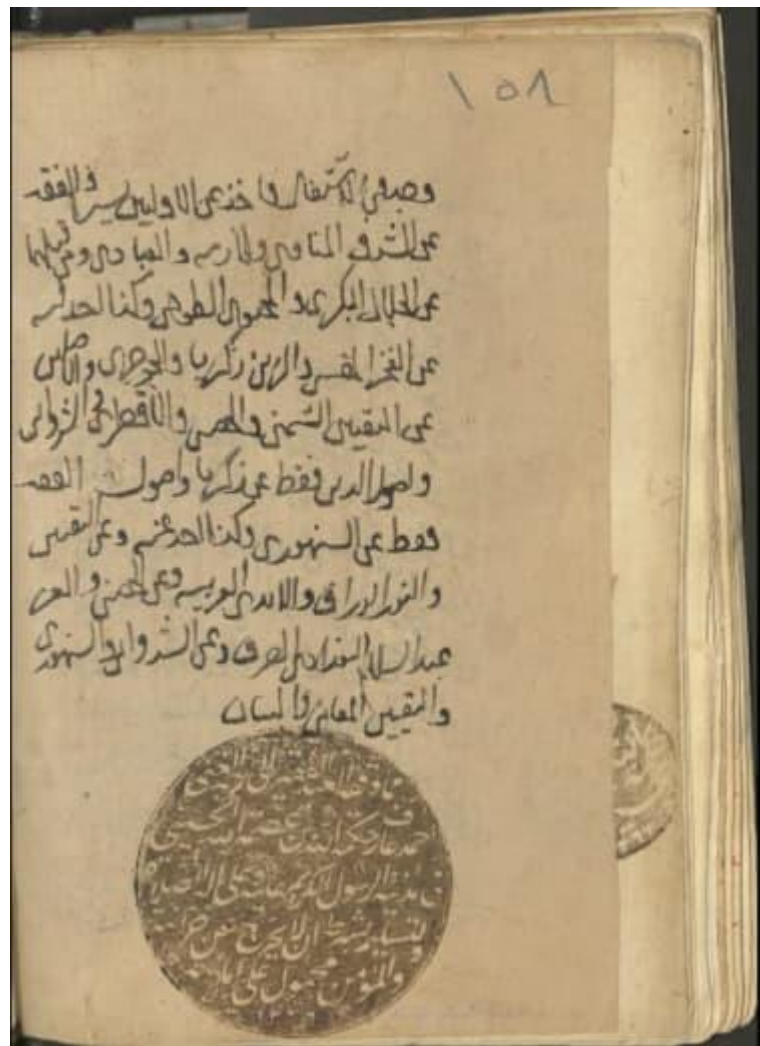 ١٥٨
الاشتغال فاخذ عن الاولين يسيرا في الفقه
عن الشرف المناوي ولازمه والعبادي ومن قبلهما
عن الجلال البكري والمحيوي الطوخي وكذا اخذ
عن الفخر المقسي والزين زكريا والجوجري والاصلين
عن التقيين الشمني والحصني والاقصرائي والشرواني
واصول الدين فقط عن زكريا واصول الفقه
فقط عن السنهوري وكذا اخذ عنه وعن التقيين
والنور الوراق والابدي العربيه وعن الحصني والعز
عبد السلام البغدادي الصرف وعن الشرواني والسنهوري
والتقيين المعاني والبيان
مما وقفه العبد الفقير الى ربه الغني
احمد عارف حكمة الله بن عصمة الله الحسيني
في مدينة الرسول الكريم عليه وعلى آله الصلاة
والتسليم بشرط ان لا يخرج عن خزانته
والمؤمن محمول على امانته